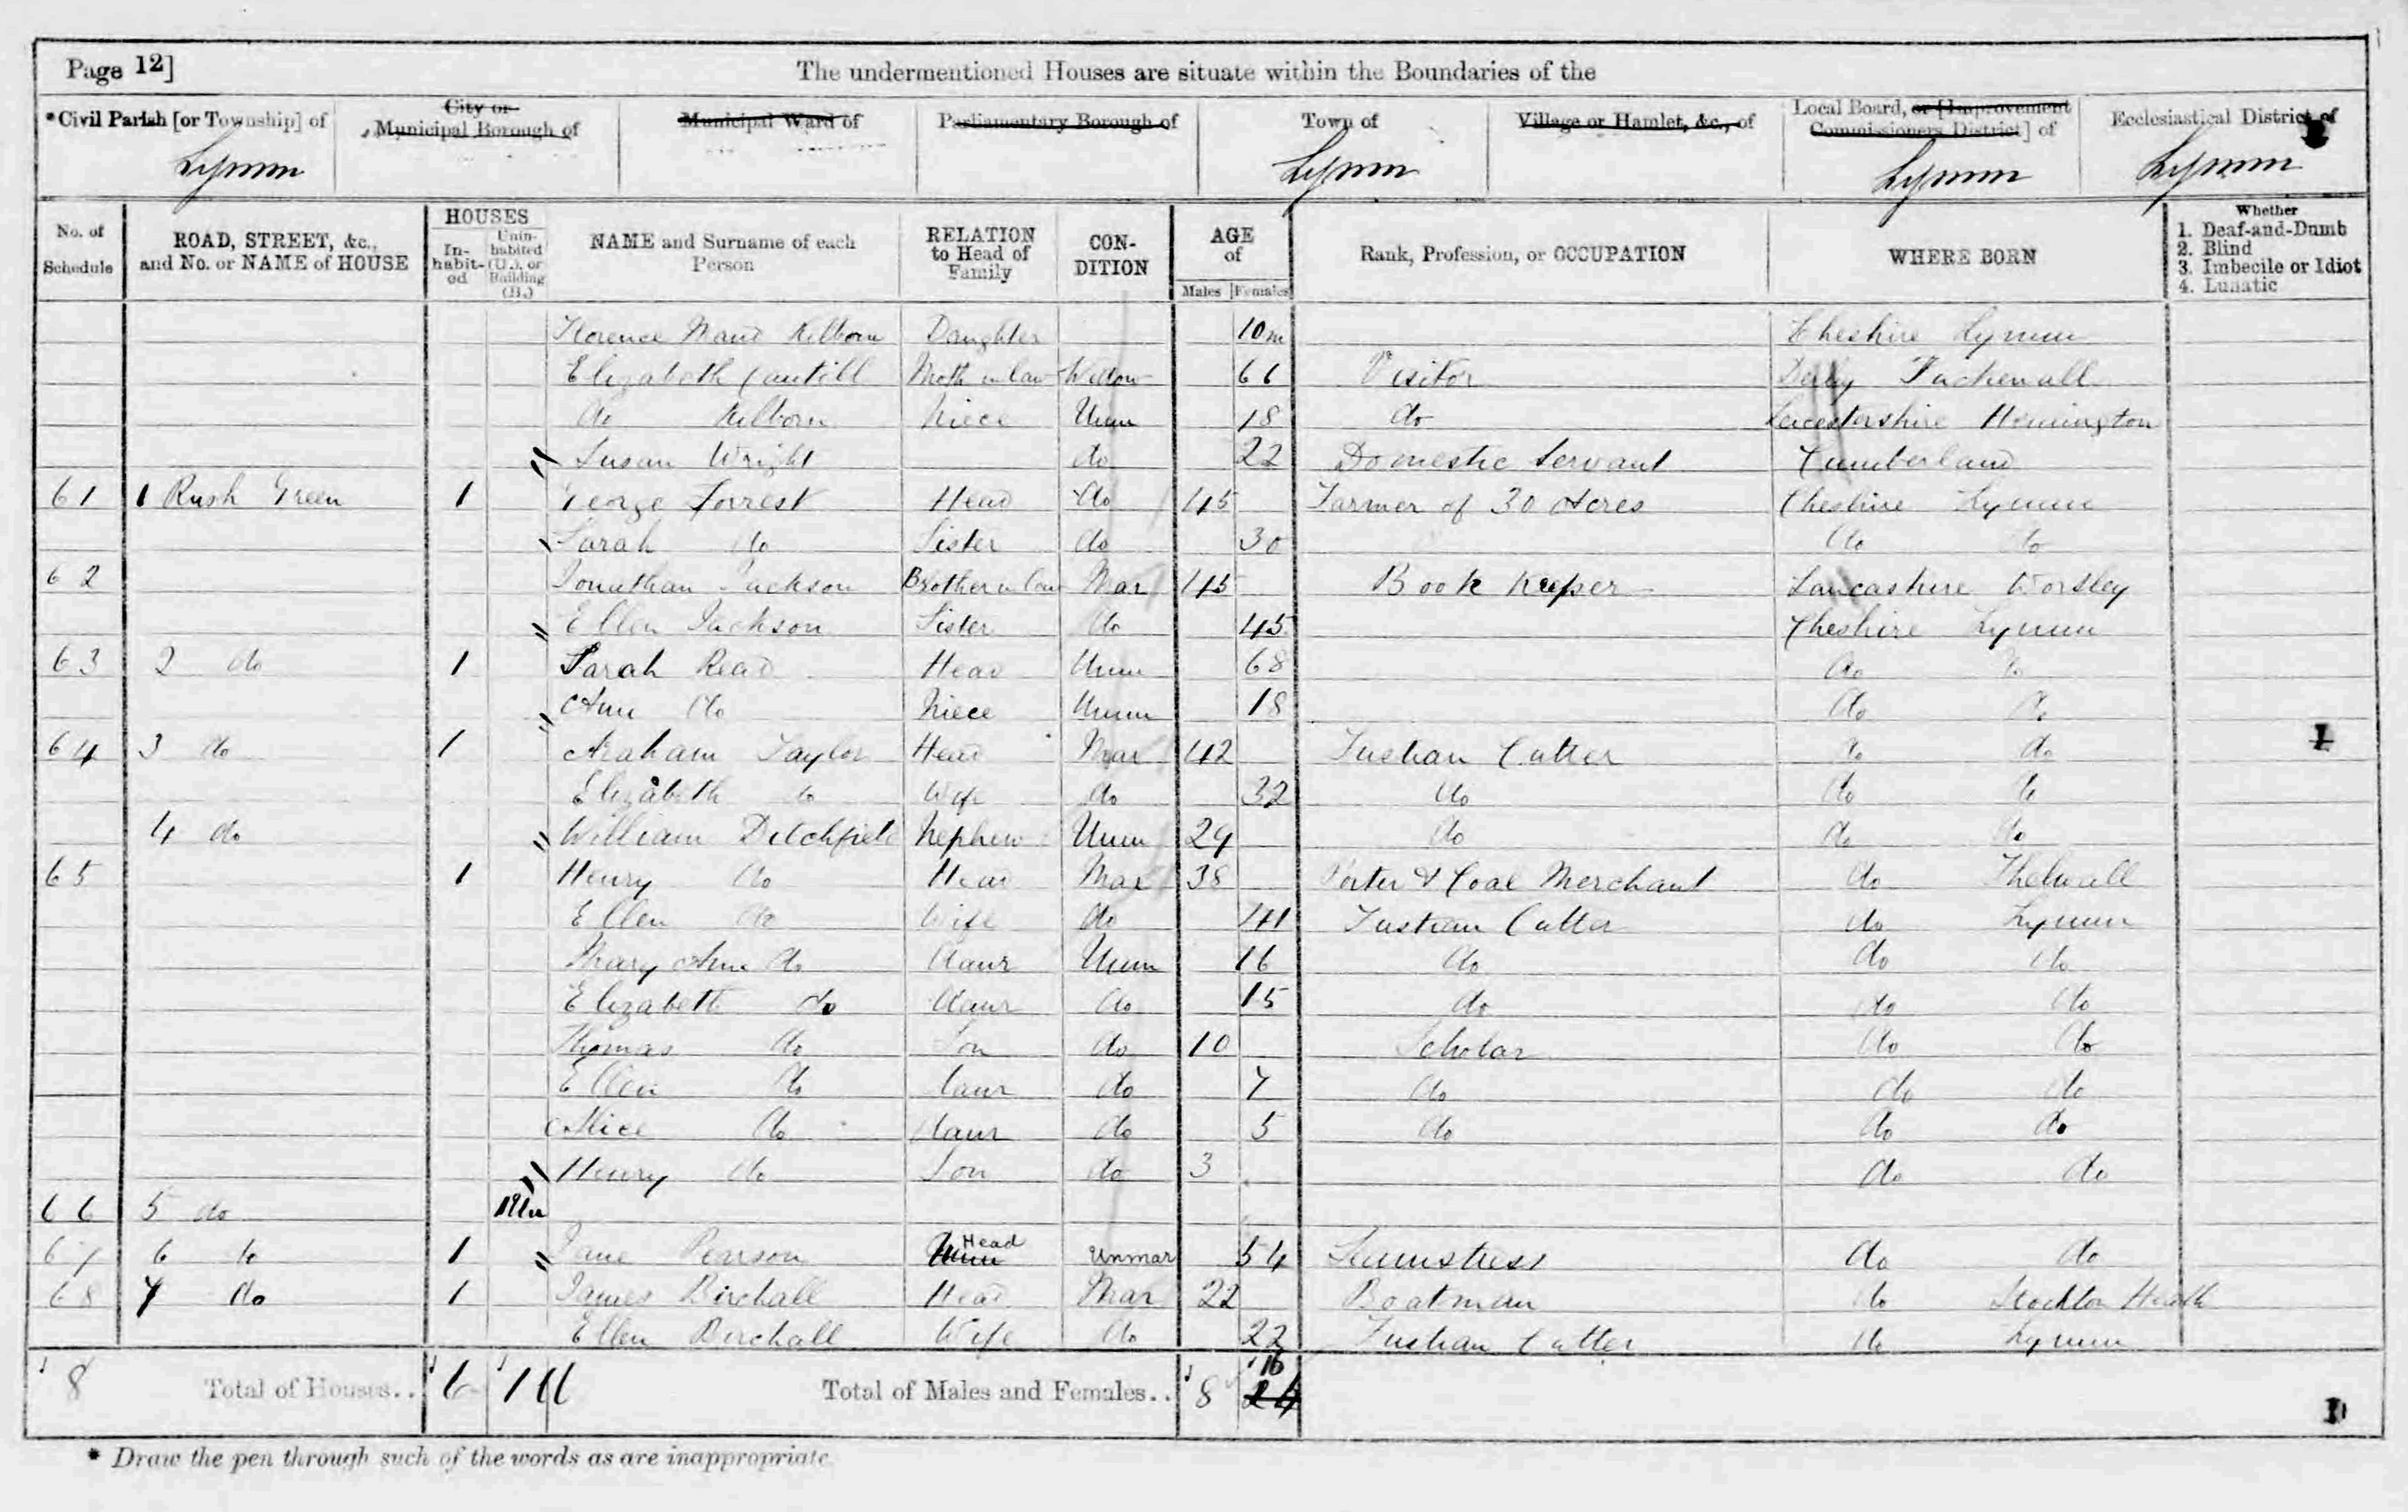 Page 12]
The undermentioned Houses are situate within the Boundaries of the
*Civil Parish [or Township] of
City or Municipal Borough of
Municipal Ward of
Parliamentary Borough of
Town of
Village or Hamlet, &c., of
Local Board, or [Improvement Commissioners District] of
Ecclesiastical District of
Lymm Lymm Lymm Lymm
No. of Schedule
ROAD, STREET, &c., and No. or NAME of HOUSE
HOUSES
In-habit-ed
Unin-habited (U.), or Building (B.)
NAME and Surname of each Person
RELATION to Head of Family
CON-DITION
AGE of
Males Females
Rank, Profession, or OCCUPATION
WHERE BORN
Whether
1. Deaf-and-Dumb
2. Blind
3. Imbecile or Idiot
4. Lunatic
Florence Maud Kilborn Daughter 10m Cheshire Lymm
Elizabeth Cantill Moth in law Widow 66 Visitor Derby
do Kilborn Niece Unm 18 do Leicestershire Hemington
Susan Wright do 22 Domestic Servant Cumberland
61 1 Rush Green 1 George Forrest Head do 45 Farmer of 30 Acres Cheshire Lymm
Sarah do Sister do 30 do do
62 Jonathan Jackson Brother in law Mar 45 Book Keeper Lancashire Worsley
Ellen Jackson Sister do 45 Cheshire Lymm
63 2 do 1 Sarah Read Head Unm 68 do do
Ann do Niece Unm 18 do do
64 3 do 1 Araham Taylor Head Mar 42 Fustian Cutter do do
Elizabeth do Wife do 32 do do do
4 do William Ditchfield Nephew Unm 29 do do do
65 1 Henry do Head Mar 38 Porter & Coal Merchant do Thelwall
Ellen do Wife do 41 Fustian Cutter do Lymm
Mary Ann do Daur Unm 16 do do do
Elizabeth do Daur do 15 do do do
Thomas do Son do 10 Scholar do do
Ellen do Daur do 7 do do do
Alice do Daur do 5 do do do
Henry do Son do 3 do do
66 5 do
67 6 do 1 Jane Pearson Head Unmar 54 Seamstress do do
68 7 do 1 James Birchall Head Mar 22 Boatman do Stockton Heath
Ellen Birchall Wife do 22 Fustian Cutter do Lymm
8 Total of Houses.. 6 1 Total of Males and Females.. 8 16 24
* Draw the pen through such of the words as are inappropriate